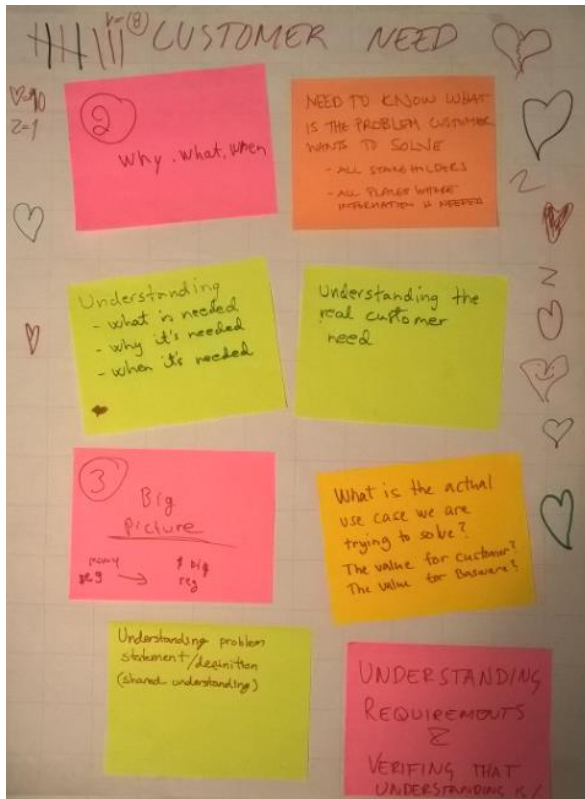 (8)
CUSTOMER NEED
=10
Z=1
2
Why, what, when
NEED TO KNOW WHAT
IS THE PROBLEM CUSTOMER
WANTS TO SOLVE
- ALL STAKEHOLDERS
- ALL PLACES WHERE
INFORMATION IS NEEDED
Z
Z
Understanding
- what is needed
- why it's needed
- when it's needed
Understanding the
real customer
need
3
Big
picture
many
reg
1 big
reg
What is the actual
use case we are
trying to solve?
The value for customer?
The value for Basware?
Understanding problem
statement/definition
(shared understanding)
UNDERSTANDING
REQUIREMENTS
Σ
VERIFYING THAT
UNDERSTANDING IS